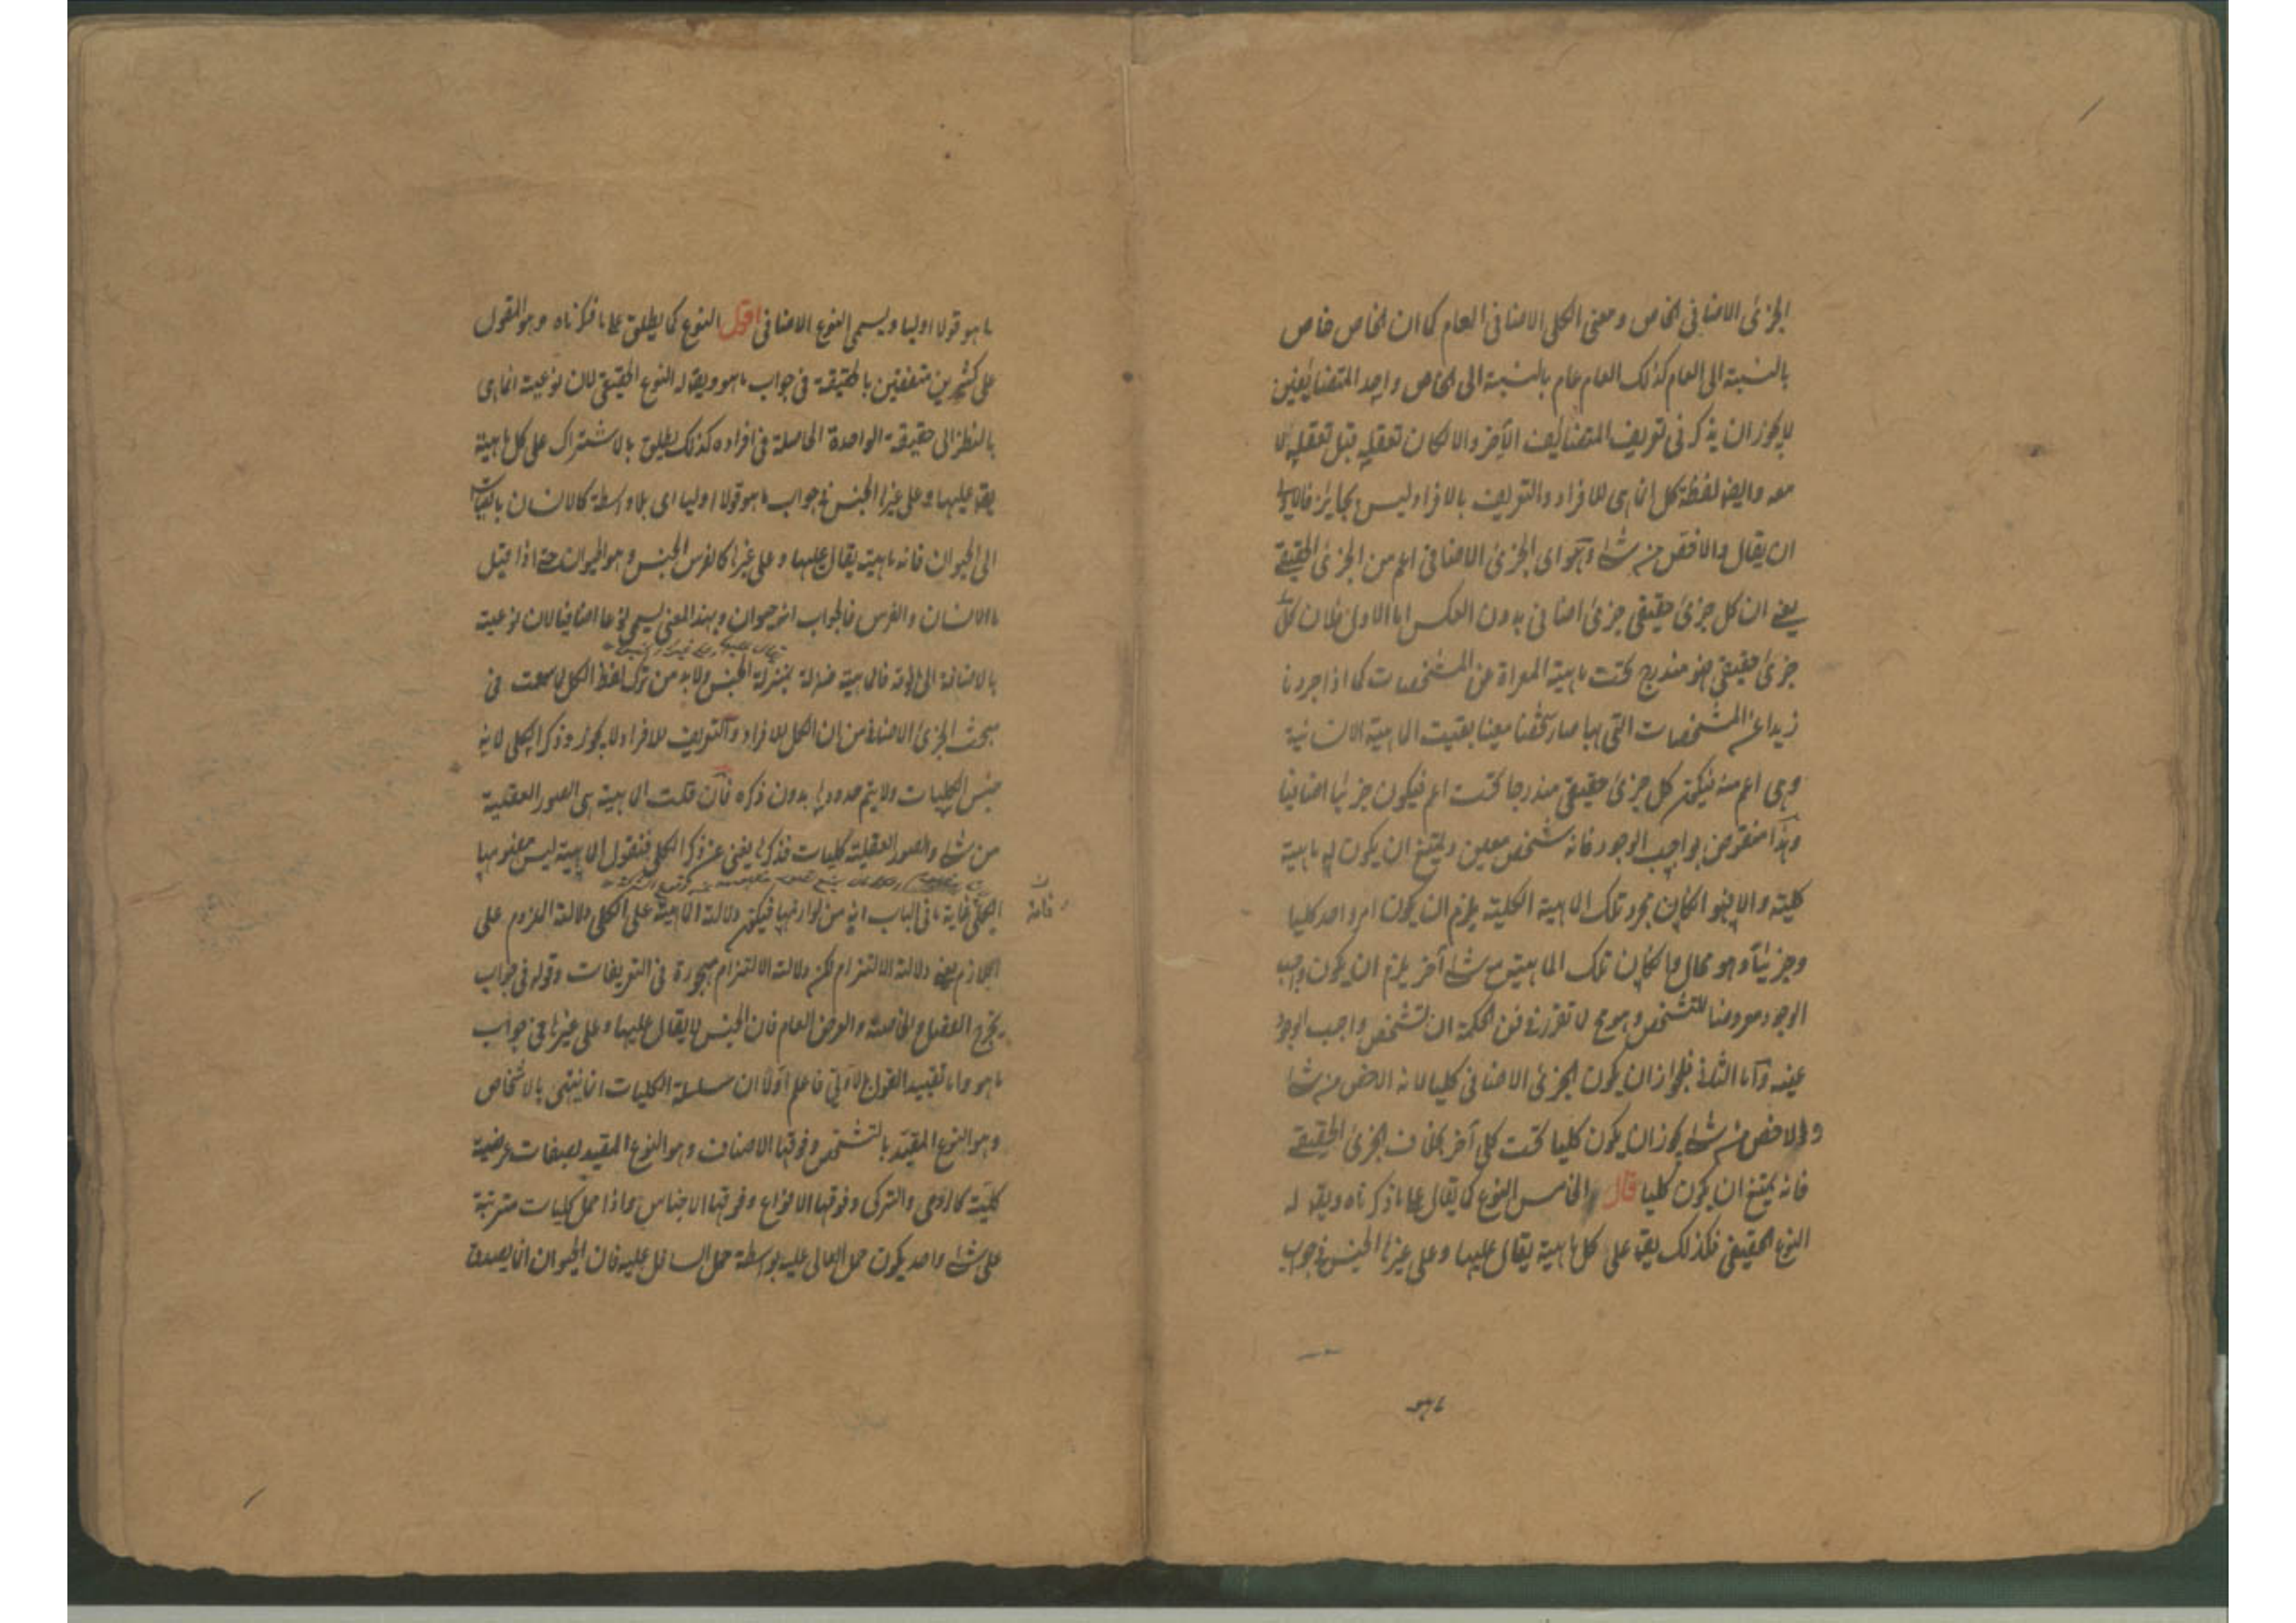 الجزئى الاضافى الخاص ومعنى الكلى الاضافى العام كما ان الخاص خاص
بالنسبة الى العام كذلك العام عام بالنسبة الى الخاص واحد المتضايفين
لا يجوز ان يذكر فى تعريف المتضايف الآخر والا لكان تعقله قبل تعقله لا
معه وايضا لفظة كل انما هى للافراد والتعريف بالافراد ليس بجايز فالاولى
ان يقال هو الاخص من شئ وهو اى الجزئ الاضافى اعم من الجزئ الحقيقے
يعنے ان كل جزئ حقيقى جزئ اضافى بدون العكس اما الاول فلان كل
جزئ حقيقى فهو مندرج تحت ماهيته المعراة عن المشخصات كما اذا جردنا
زيدا عن المشخصات التى بها صار شخصا معينا بقيت الماهية الانسانية
وهى اعم منه فيكون كل جزئ حقيقى مندرجا تحت اعم فيكون جزئيا اضافيا
وهذا منقوض بواجب الوجود فانه شخص معين ويمتنع ان يكون له ماهية
كلية والا فهو ان كان مجرد تلك الماهية الكلية يلزم ان يكون امر واحد كليا
وجزئيا وهو محال وان كان تلك الماهية مع شئ آخر يلزم ان يكون واجب
الوجود معروضا للتشخص وهو مح لما تقرر فى فن الحكمة ان تشخص واجب الوجود
عينه واما الثانى فلجواز ان يكون الجزئى الاضافى كليا لانه الاخص من شئ
والاخص من شئ يجوز ان يكون كليا تحت كلى آخر بخلاف الجزئ الحقيقے
فانه يمتنع ان يكون كليا قال الخامس النوع كما يقال على ما ذكرناه ويقال له
النوع الحقيقى فكذلك يقال على كل ماهية يقال عليها وعلى غيرها الجنس فى جواب
ما هو
ما هو قولا اوليا ويسمى النوع الاضافى اقول النوع كما يطلق على ما ذكرناه وهو المقول
على كثيرين متفقين بالحقيقة فى جواب ما هو ويقال له النوع الحقيقى لان نوعيته انما هى
بالنظر الى حقيقته الواحدة الحاصلة فى افراده كذلك يطلق بالاشتراك على كل ماهية
يقال عليها وعلى غيرها الجنس فى جواب ما هو قولا اوليا اى بلا واسطة كالانسان بالقياس
الى الحيوان فانه ماهية يقال عليها وعلى غيرها كالفرس الجنس وهو الحيوان حتے اذا قيل
ما الانسان والفرس فالجواب انه حيوان وبهذا المعنى يسمى نوعا اضافيا لان نوعيته
بالاضافة الى ما فوقه فالماهية منزلة بمنزلة الجنس ولا بد من ترك لفظ الكل لما سمعت فى
مبحث الجزئ الاضافى من ان الكل للافراد والتعريف للافراد لا يجوز وذكر الكلى لانه
جنس الكليات ولا يتم حدودها بدون ذكره فان قلت الماهية هى الصور العقلية
من شئ والصور العقلية كليات فذكرها يغنى عن ذكر الكلى فنقول الماهية ليس مفهومها
مفهوم الكلى غاية ما فى الباب انه من لوازمها فيكون دلالة الماهية على الكلى دلالة الملزوم على
اللازم يعنے دلالة الالتزام لكن دلالة الالتزام مهجورة فى التعريفات وقوله فى جواب
يخرج الفصل والخاصة والعرض العام فان الجنس لا يقال عليها وعلى غيرها فى جواب
ما هو واما تقييد القول بالاولى فاعلم اولا ان سلسلة الكليات انما ينتهى بالاشخاص
وهو النوع المقيد بالتشخص وفوقها الاصناف وهو النوع المقيد بصفات عرضية
كلية كالرومى والتركى وفوقها الانواع وفوقها الاجناس واذا حمل كليات مترتبة
على شئ واحد يكون حمل العالى عليه بواسطة حمل السافل عليه فان الحيوان انما يصدق